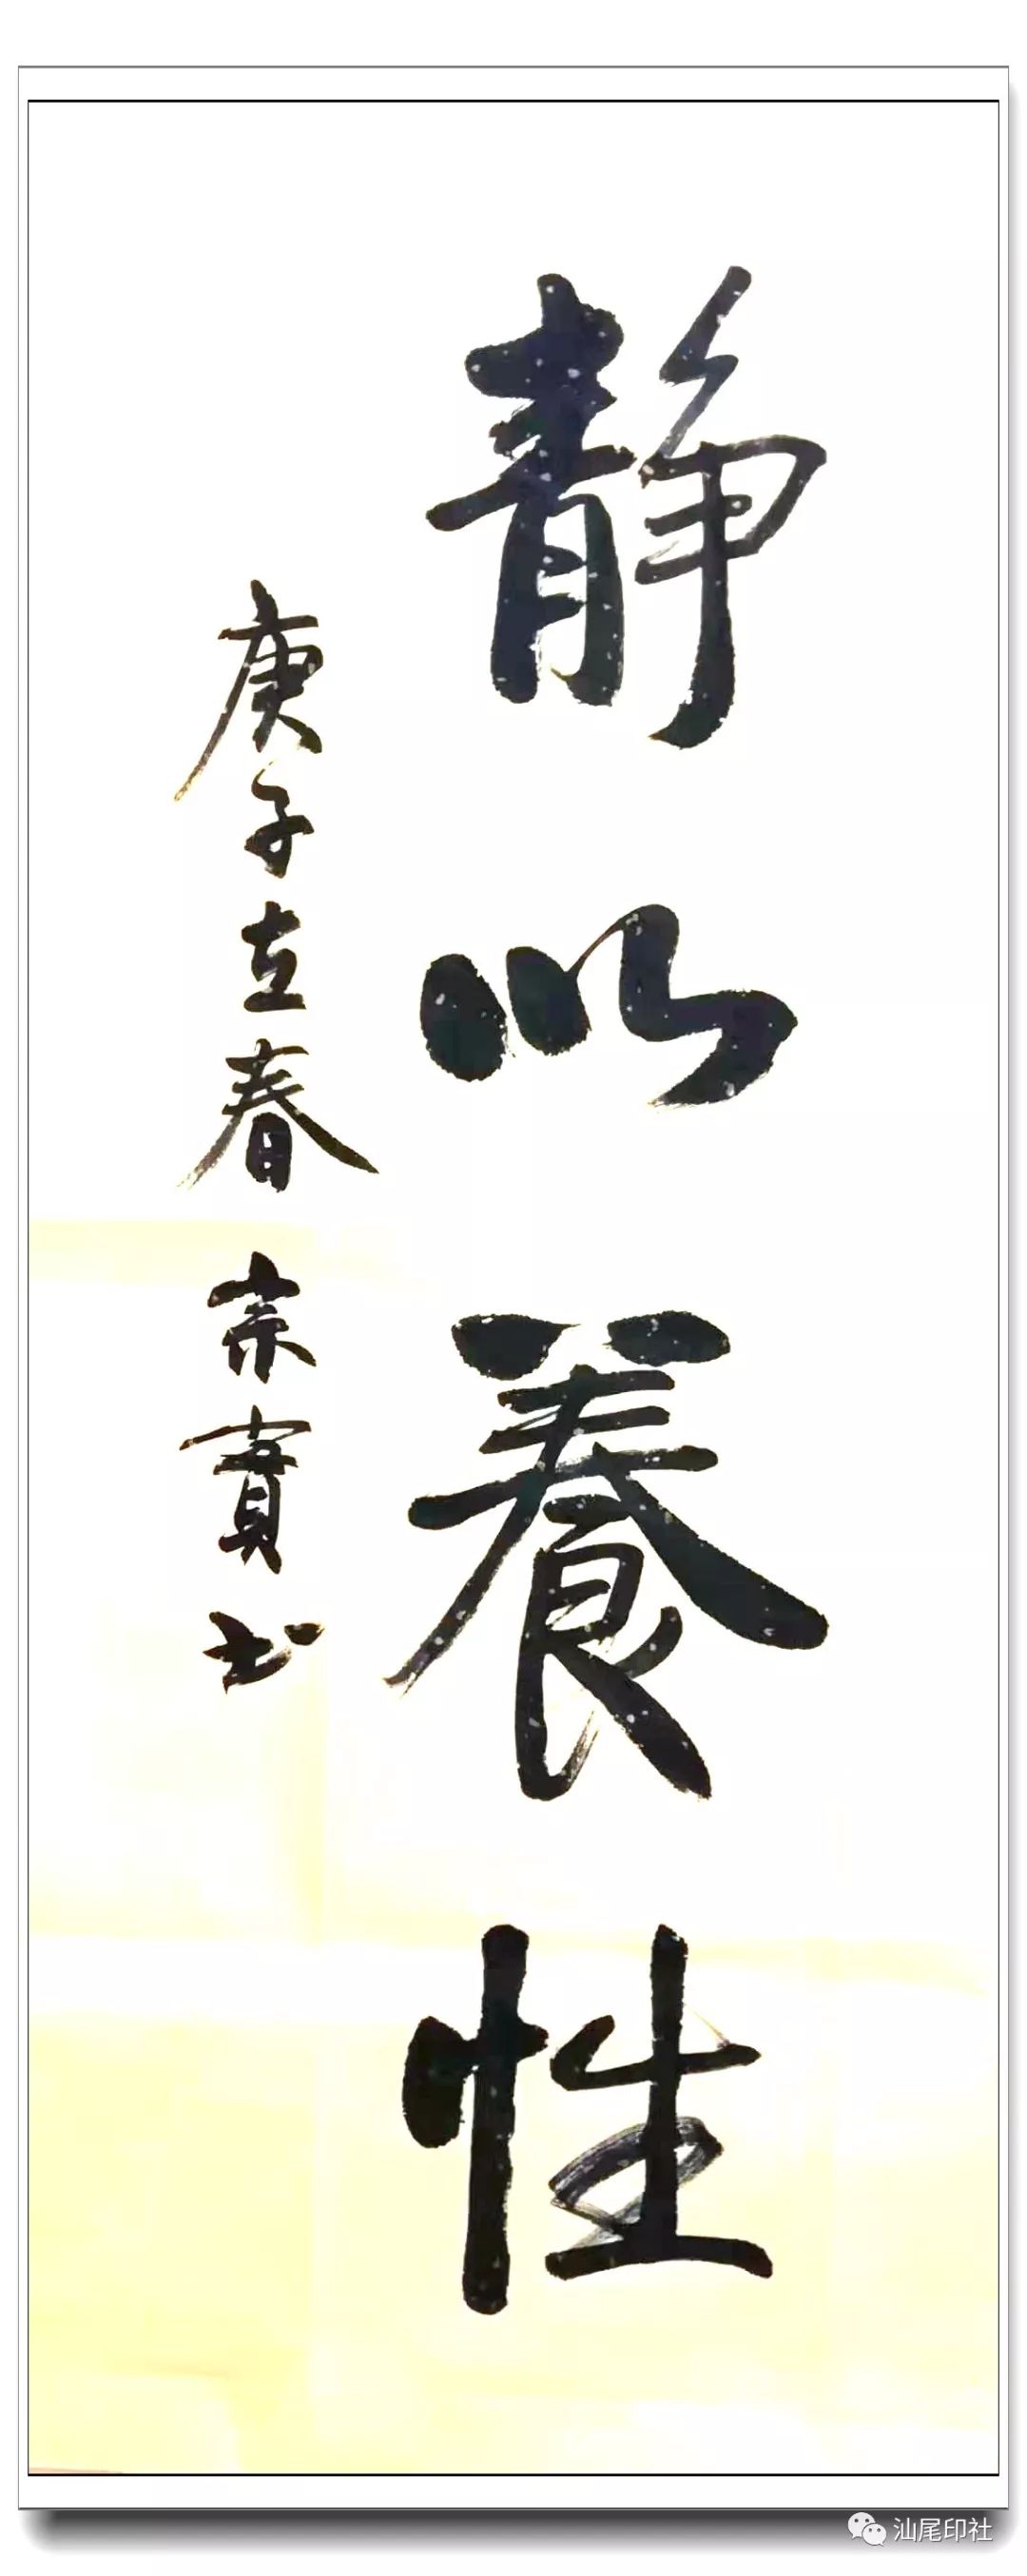 静以養性
庚子立春 宗寶书
汕尾印社